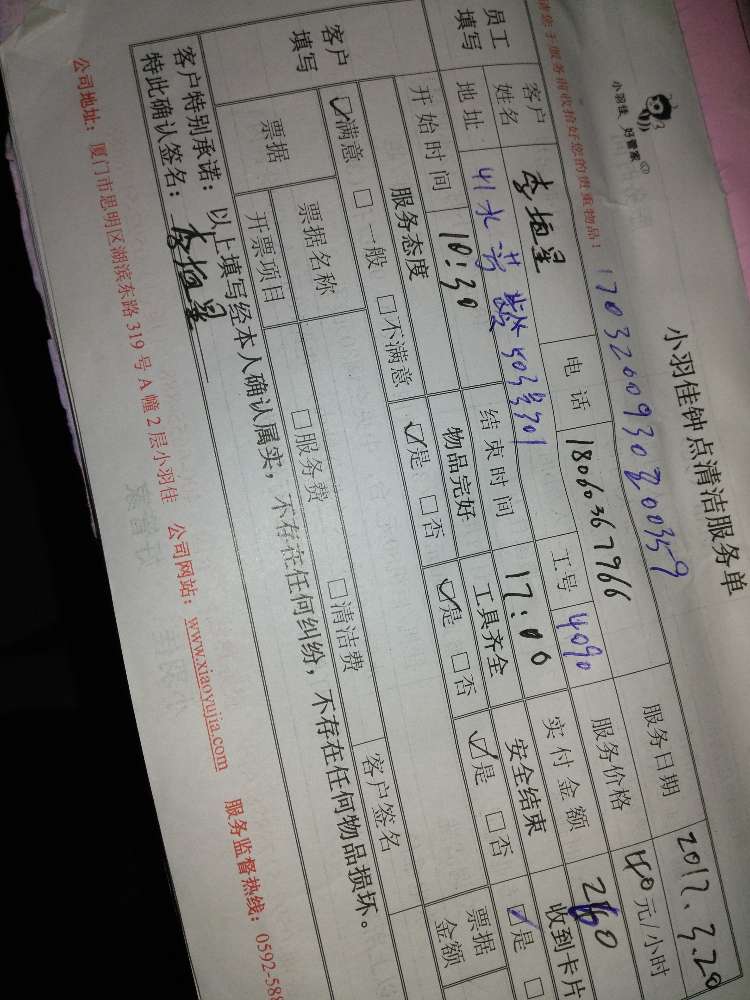 小羽佳 好管家
小羽佳钟点清洁服务单
服务前收拾好您的贵重物品！
1703200930200359
员工填写
客户姓名
电话 18060367966
服务日期 2017.3.20
地址
工号 4090
服务价格 40元/小时
开始时间 10:30
结束时间 17:00
实付金额
客户填写
服务态度
物品完好
工具齐全
安全结束
收到卡片
☑满意 □一般 □不满意
☑是 □否
☑是 □否
☑是 □否
☑是 □
票据
票据名称
□服务费
□清洁费
客户签名
票据金额
开票项目
客户特别承诺：以上填写经本人确认属实，不存在任何纠纷，不存在任何物品损坏。
特此确认签名：
公司地址：厦门市思明区湖滨东路319号A幢2层小羽佳 公司网站：www.xiaoyujia.com 服务监督热线：0592-588